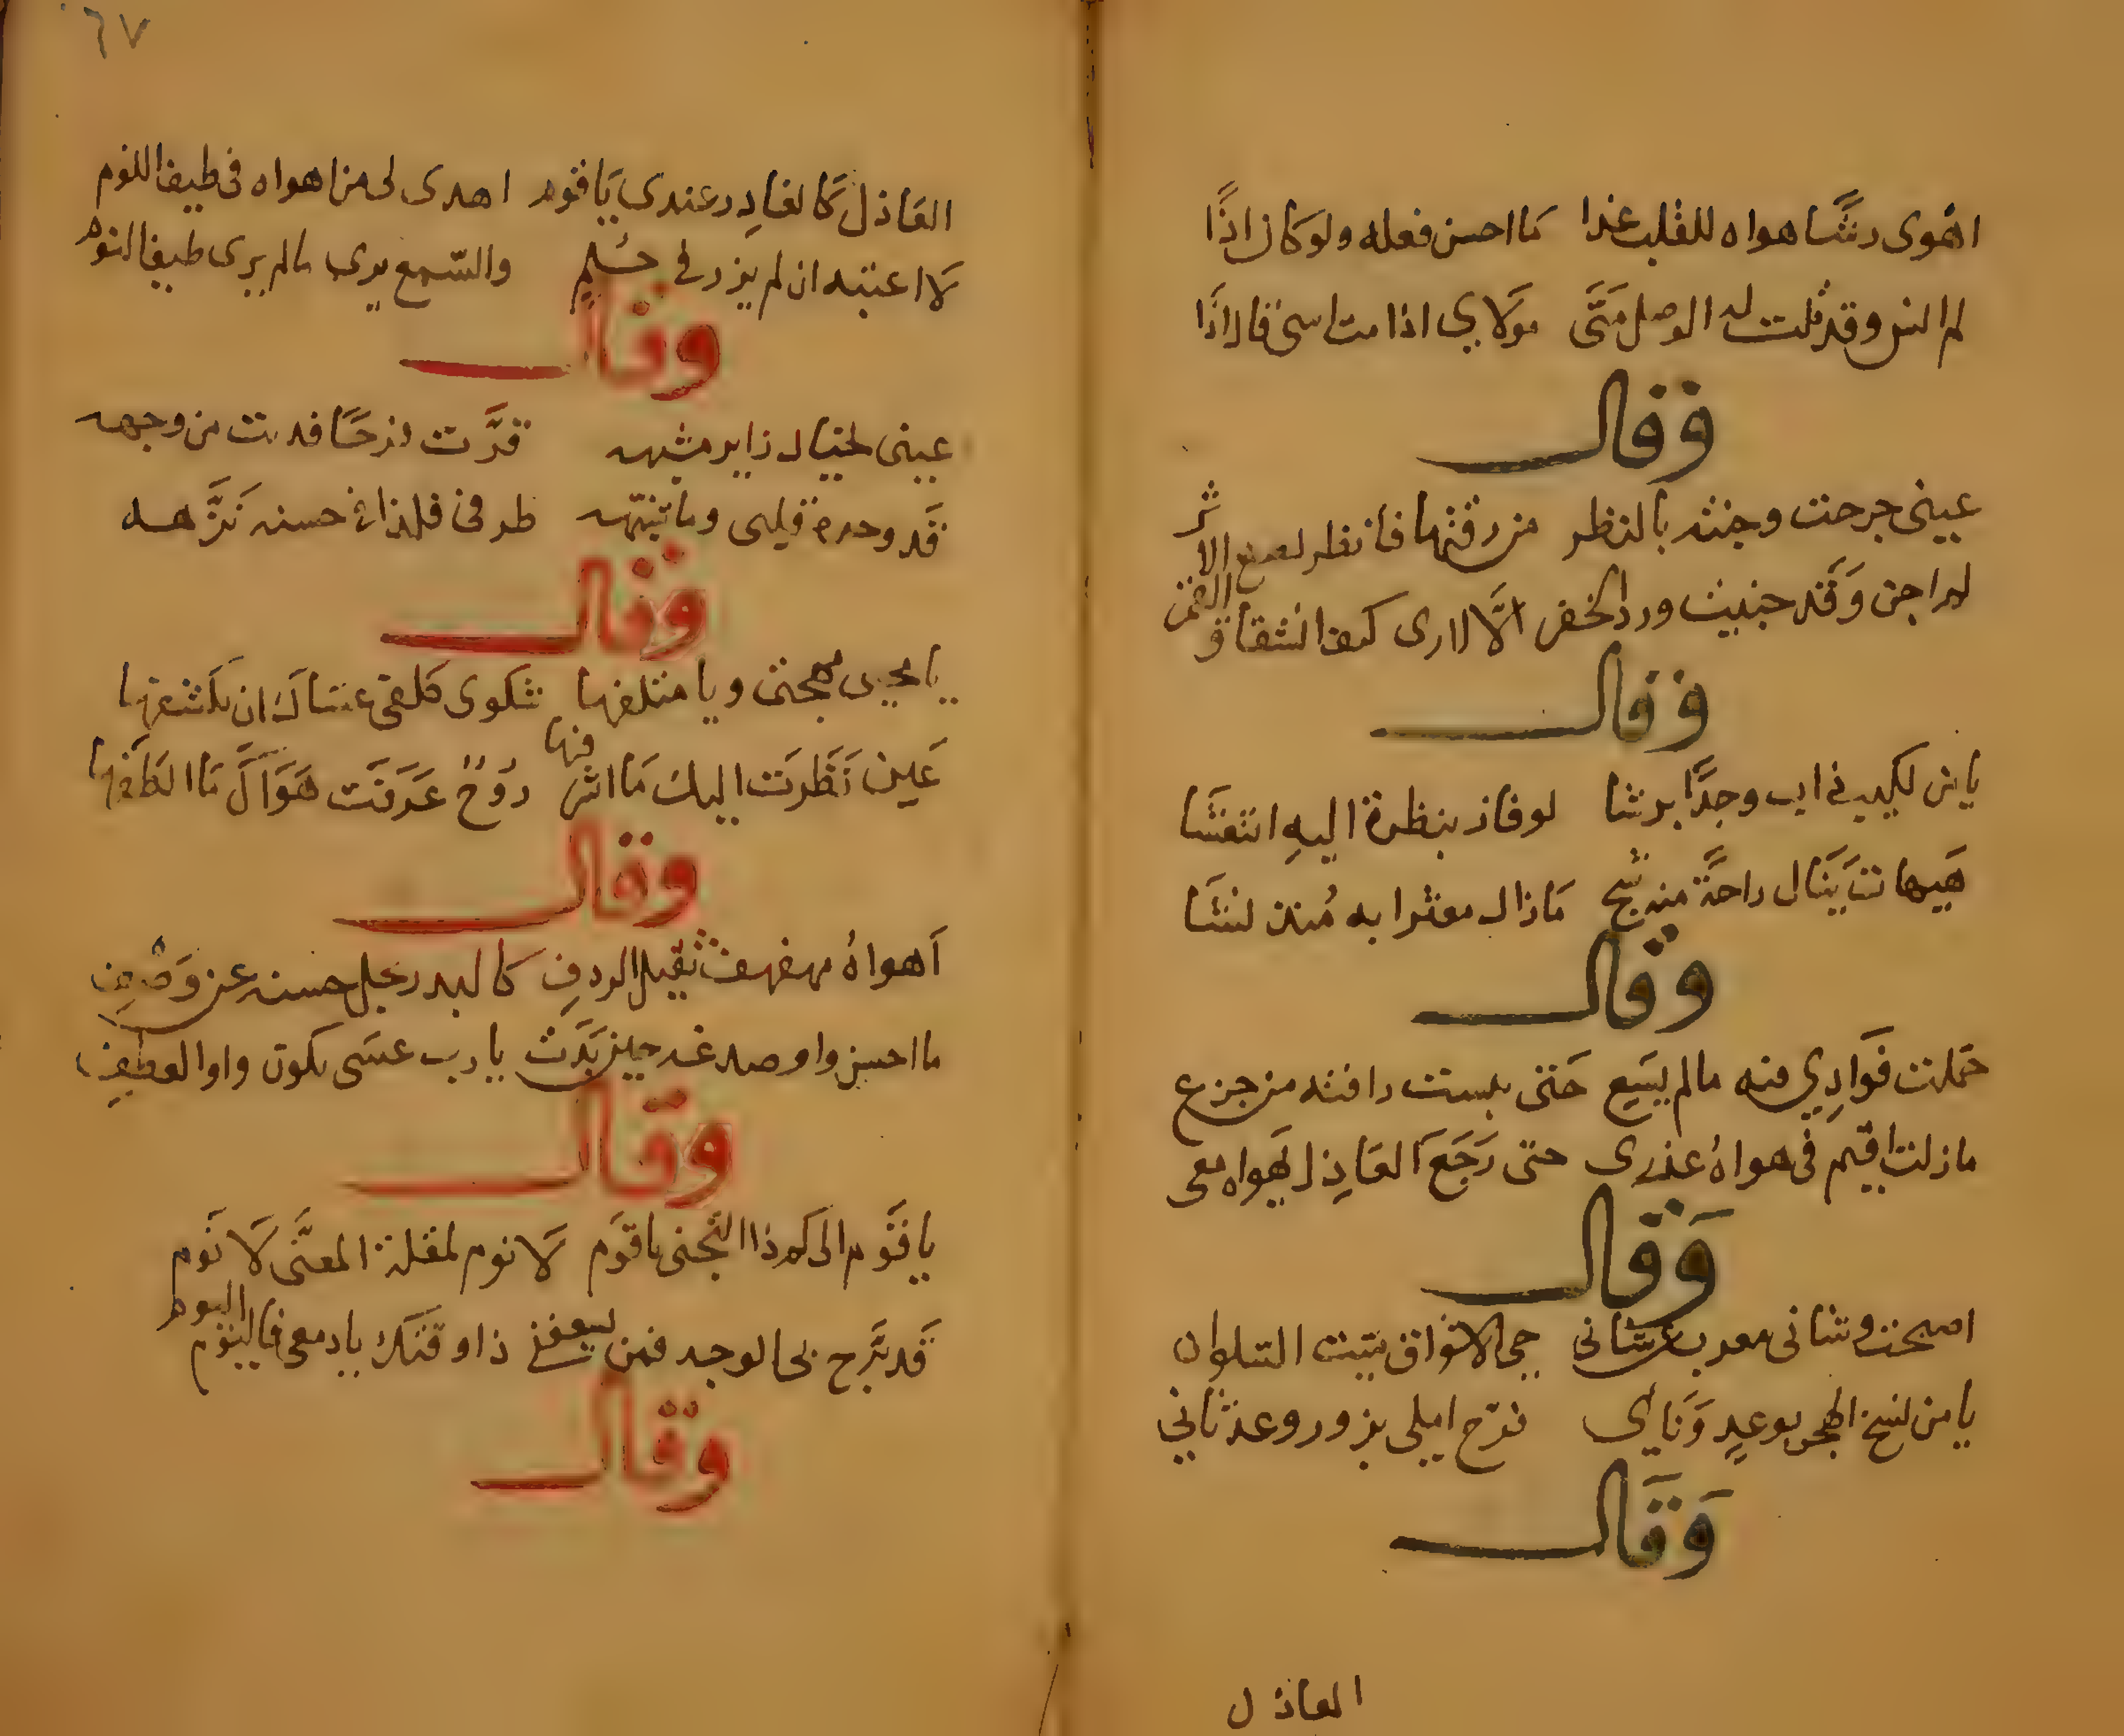 اهوى رشًا هواه للقلب غذا ما احسن فعله ولو كان اذًا
لم انس وقد قلت له الوصل مَتَى مولاي اذا مت اسى قال اذَا
وقال
عينى جرحت وجنته بالنظر من رقتها فانظر لحسن الاثر
لم اجن وقد جنيت ورد الخفر الا لارى كيف انشقاق القمر
وقال
يا من لكييب ذاب وجدًا برشا لو فاز بنظرة اليهِ انتعشا
هيهات يَنال راحةً منه شج مَا زال معثرا به مُنذ نشَا
وقال
حَملت فَوَادِي فيه ما لم يسَعِ حَتى يئست رافته من جزع
ما زلت اقيم فى هواهُ عذرى حتى رَجَعَ العَاذِل يهَواه معى
وَقال
اصبحت وشانى معرب عن شانى حي الاشواق ميت السلوان
يا من نسخ الهجر بوعدٍ وَناى فرح املى بزور وعد ثاني
وَقَال
العاذل
٦٧
العَاذل كَالغَادِر عندى يَا قوم اهدى لى من اهواه فى طيف اللوم
لَا اعتبه ان لم يزر فى حُلمٍ والسّمع يرى مالم يرى طيف النوم
وقال
عينى لخيال زاير مشبه قرَّت فرحًا فديت من وجهه
قَد وحده قلبى وما شبهه طرفى فلذا فى حسنه نَزَّهه
وقال
يا محيى مهجتى ويا متلفها شكوى كلفى عساك ان تكشفها
عَين نَظَرَت اليك مَا اشرفها رُوحٌ عَرَفَت هَوَاكَ مَا الطَفَها
وقال
اَهواهُ مهفهف ثقيل الردفِ كالبدر يجل حسنه عن وَصْفِى
ما احسن واو صدغه حين بَدَت يا رب عسَى تكون واو العطفِ
وقال
يا قَوم الى كم ذا التجنى يا قوَم لَا نوم لمقلة المعنَّى لَا نَوم
قَد بَرَّح بى الوجد فمن يسعفنى ذا وقتك يا دمعى فاليوم اليوم
وقال